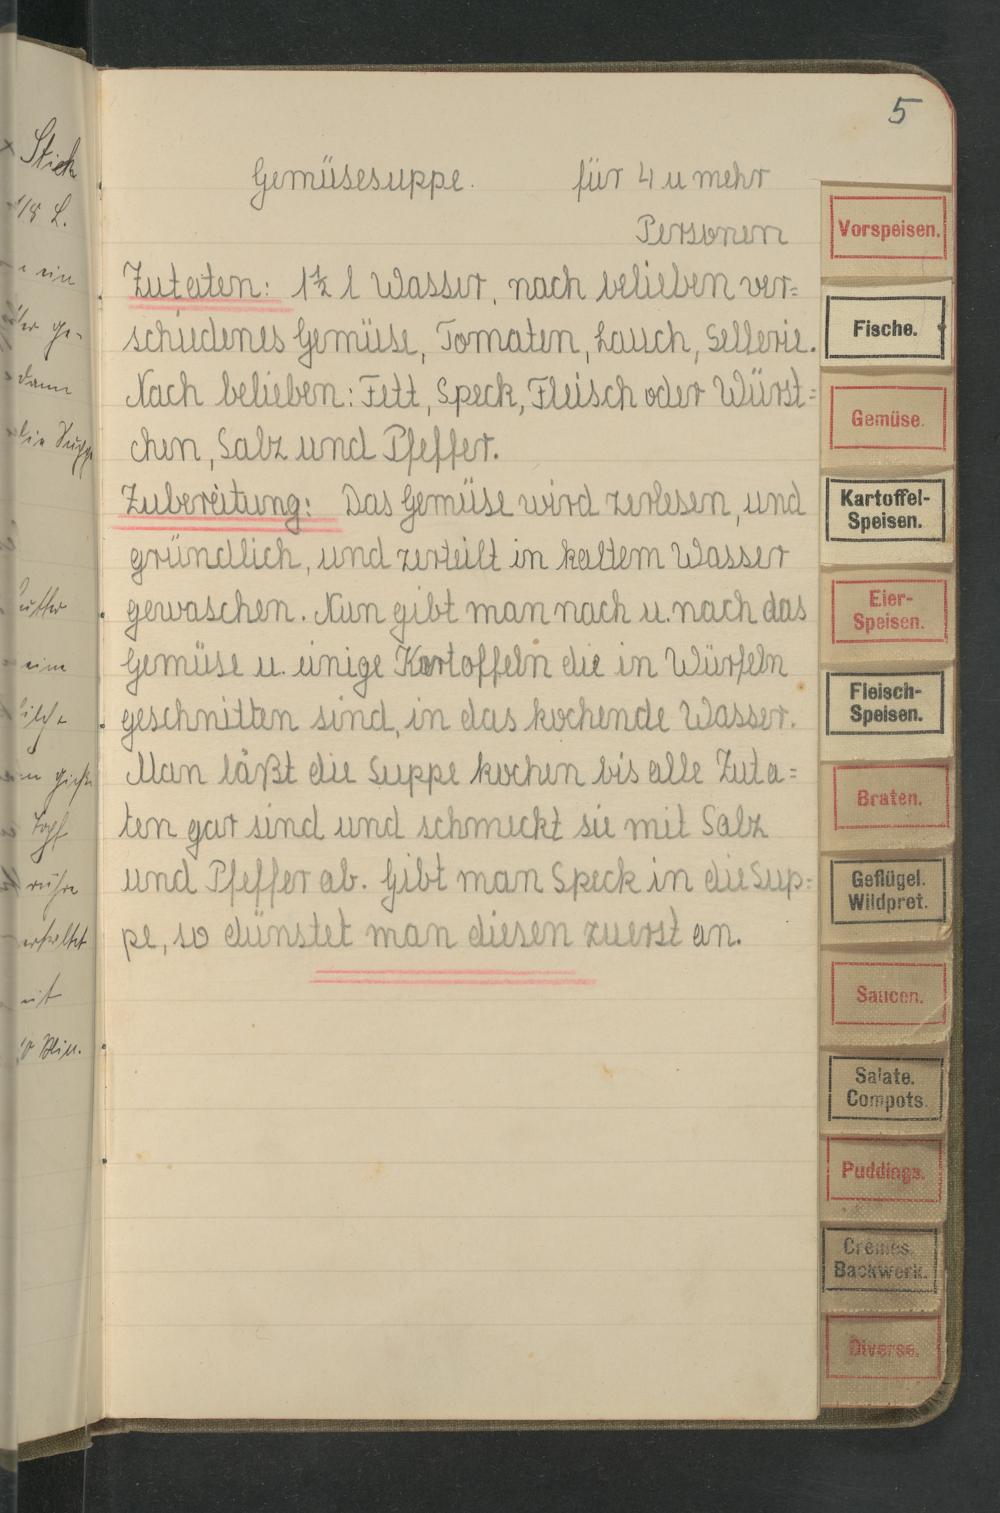 Stick
1/8 L.
ein
ge-
dann
die Supp
eine
Topf
rühre
mit
10 Min.
5
Gemüsesuppe. für 4 u mehr
Personen
Zutaten: 1½ l Wasser, nach belieben ver=
schiedenes Gemüse, Tomaten, Lauch, Sellerie.
Nach belieben: Fett, Speck, Fleisch oder Würst=
chen, Salz und Pfeffer.
Zubereitung: Das Gemüse wird zerlesen, und
gründlich, und zerteilt in kaltem Wasser
gewaschen. Nun gibt man nach u. nach das
Gemüse u. einige Kartoffeln die in Würfeln
geschnitten sind, in das kochende Wasser.
Man läßt die Suppe kochen bis alle Zuta=
ten gar sind und schmeckt sie mit Salz
und Pfeffer ab. Gibt man Speck in die Sup=
pe, so dünstet man diesen zuerst an.
Vorspeisen.
Fische.
Gemüse.
Kartoffel-
Speisen.
Eier-
Speisen.
Fleisch-
Speisen.
Braten.
Geflügel.
Wildpret.
Saucen.
Salate.
Compots.
Puddings.
Crêmes.
Backwerk.
Diverse.